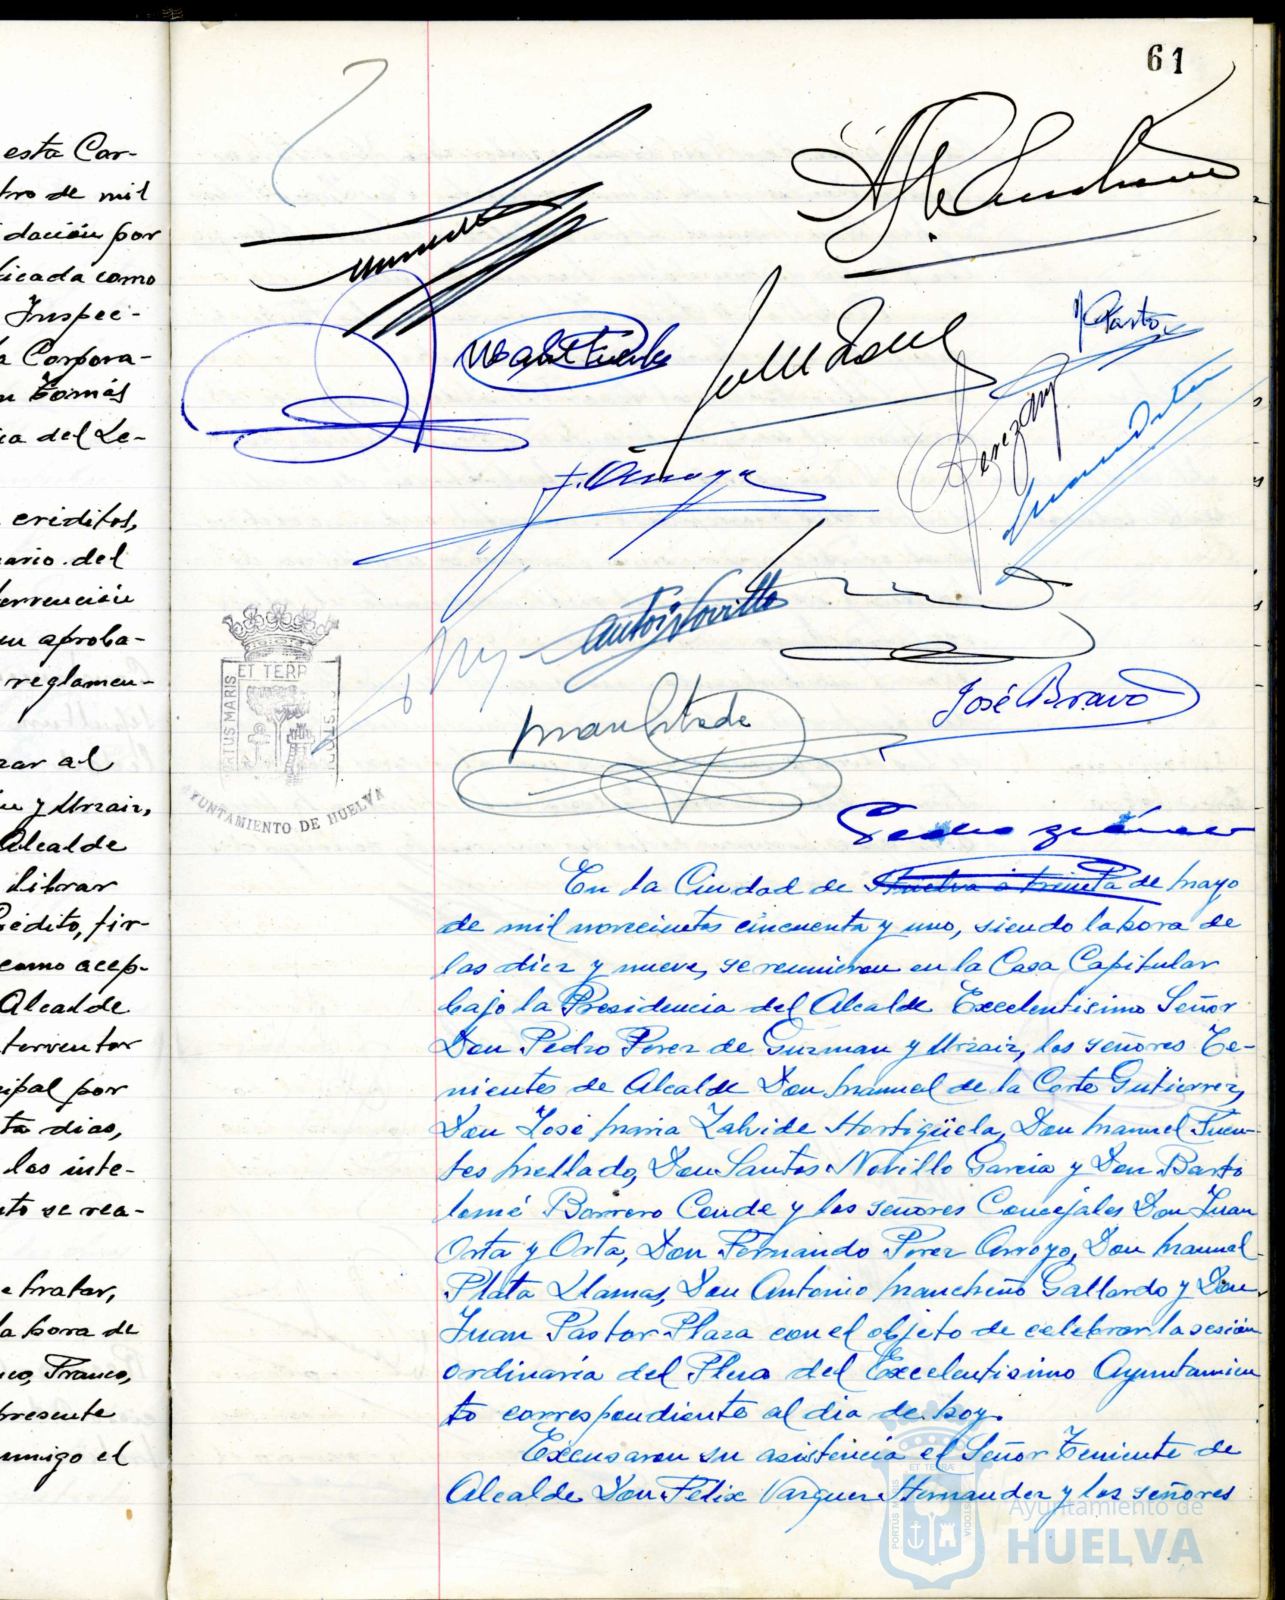 esta Cor-
tro de mil
dación por
licada como
Inspec-
a Corpora-
n Tomás
ica del Le-
creditos,
ario del
tervención
en aproba-
reglamen-
zar al
n y Urzaiz,
Alcalde
librar
rédito, fir-
como acep-
Alcalde
terventor
cipal por
ta dias,
los inte-
nto se rea-
e tratar,
la hora de
nco, Franco,
presente
onmigo el
61
J Pastor
J. Orta
Antº Novillo
José Bravo
ET TERR
PORTUS MARIS
AYUNTAMIENTO DE HUELVA
En la Ciudad de Huelva a treinta de Mayo
de mil novecientos cincuenta y uno, siendo la hora de
las diez y nueve, se reunieron en la Casa Capitular
bajo la Presidencia del Alcalde Excelentisimo Señor
Don Pedro Perez de Guzman y Urzaiz, los señores Te-
nientes de Alcalde Don Manuel de la Corte Gutierrez,
Don José Maria Zalvide Hortigüela, Don Manuel Fuen-
tes Mellado, Don Santos Novillo Garcia y Don Barto
lomé Borrero Conde y los señores Concejales Don Juan
Orta y Orta, Don Fernando Perez Arroyo, Don Manuel
Plata Llamas, Don Antonio Mancheño Gallardo y Don
Juan Pastor Plaza con el objeto de celebrar la sesión
ordinaria del Pleno del Excelentisimo Ayuntamien
to correspondiente al dia de hoy.
Excusaron su asistencia el Señor Teniente de
Alcalde Don Félix Vazquez Hernandez y los señores
Ayuntamiento de
HUELVA